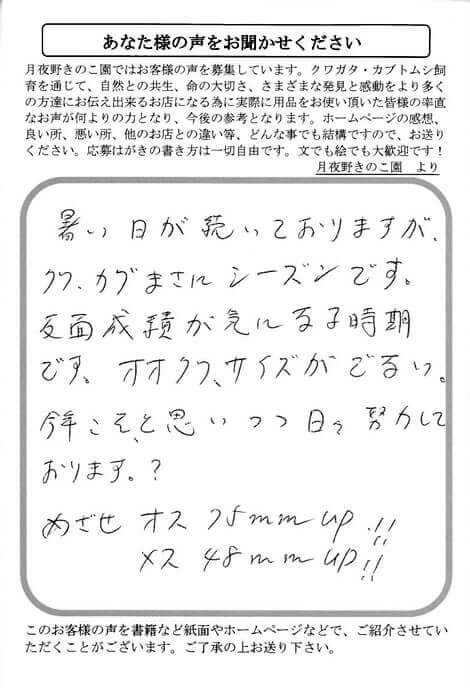 あなた様の声をお聞かせください
月夜野きのこ園ではお客様の声を募集しています。クワガタ・カブトムシ飼
育を通じて、自然との共生、命の大切さ、さまざまな発見と感動をより多く
の方達にお伝え出来るお店になる為に実際に用品をお使い頂いた皆様の率直
なお声が何よりの力となり、今後の参考となります。ホームページの感想、
良い所、悪い所、他のお店との違い等、どんな事でも結構ですので、お送り
ください。応募はがきの書き方は一切自由です。文でも絵でも大歓迎です！
月夜野きのこ園　より
暑い日が続いておりますが、
クワ、カブまさにシーズンです。
反面成績が気になる時期
です。オオクワ、サイズがでない。
今年こそ、と思いつつ日々努力して
おります。？
めざせ オス 75mm UP!!
メス 48mm UP!!
このお客様の声を書籍など紙面やホームページなどで、ご紹介させてい
ただくことがございます。ご了承の上お送り下さい。